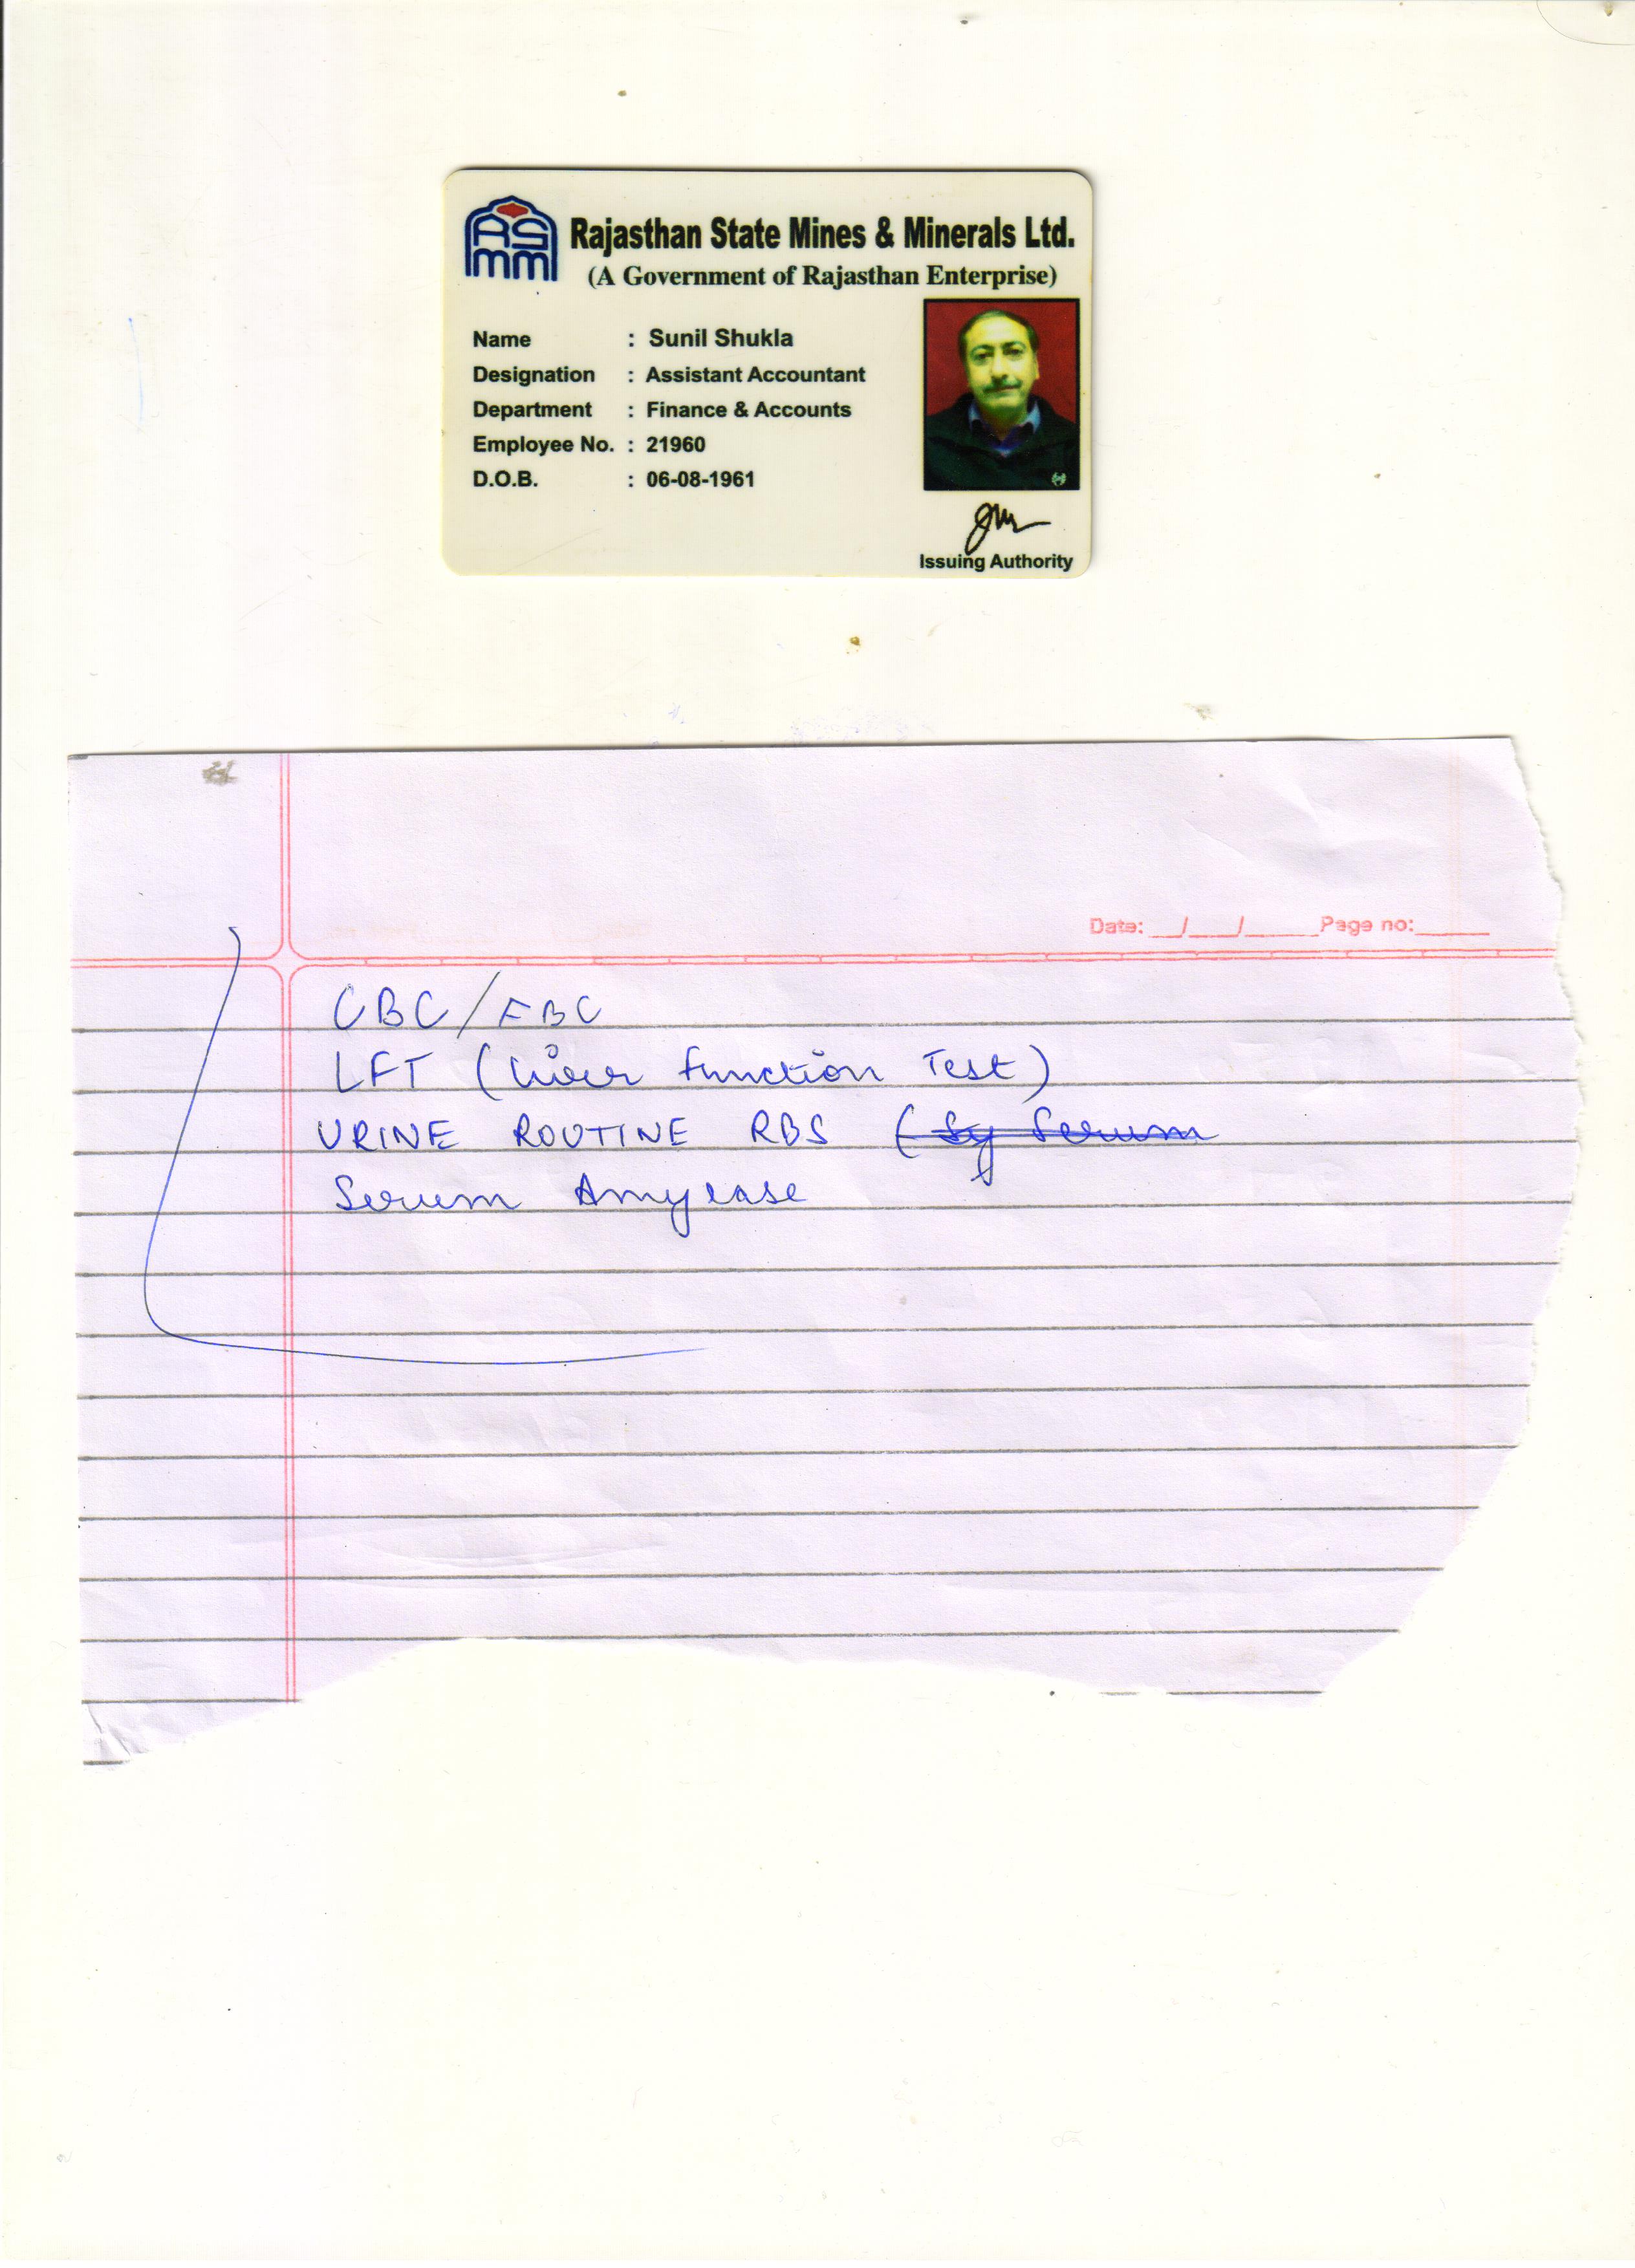 RSMM
Rajasthan State Mines & Minerals Ltd.
(A Government of Rajasthan Enterprise)
Name : Sunil Shukla
Designation : Assistant Accountant
Department : Finance & Accounts
Employee No. : 21960
D.O.B. : 06-08-1961
Issuing Authority
Date: __/__/____ Page no:_____
CBC/FBC
LFT (Liver function Test)
URINE ROUTINE RBS ( Sy Serum
Serum Amylase